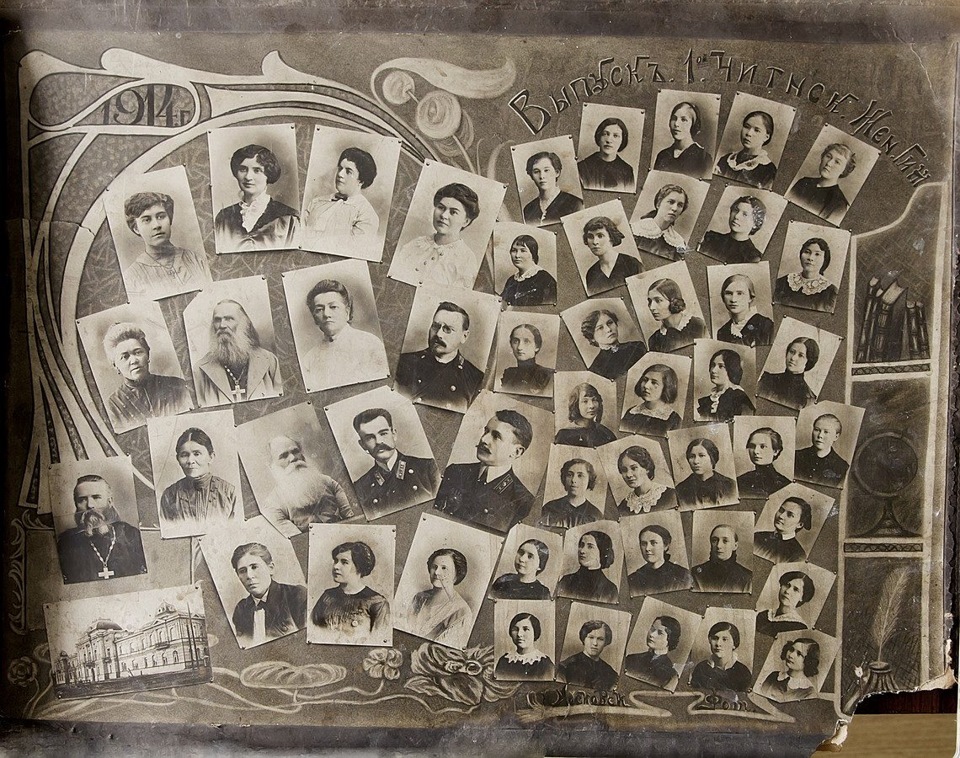 1914 г.
Выпускъ. 1ой Читнск. Жен. Гим
Фот